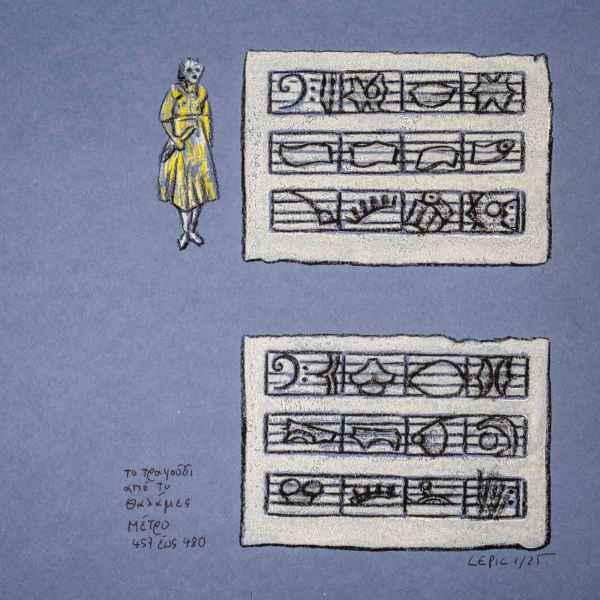 το τραγούδι
από τις
θαλάμες
Μέτρο
457 έως 480
LEPIC 1/25